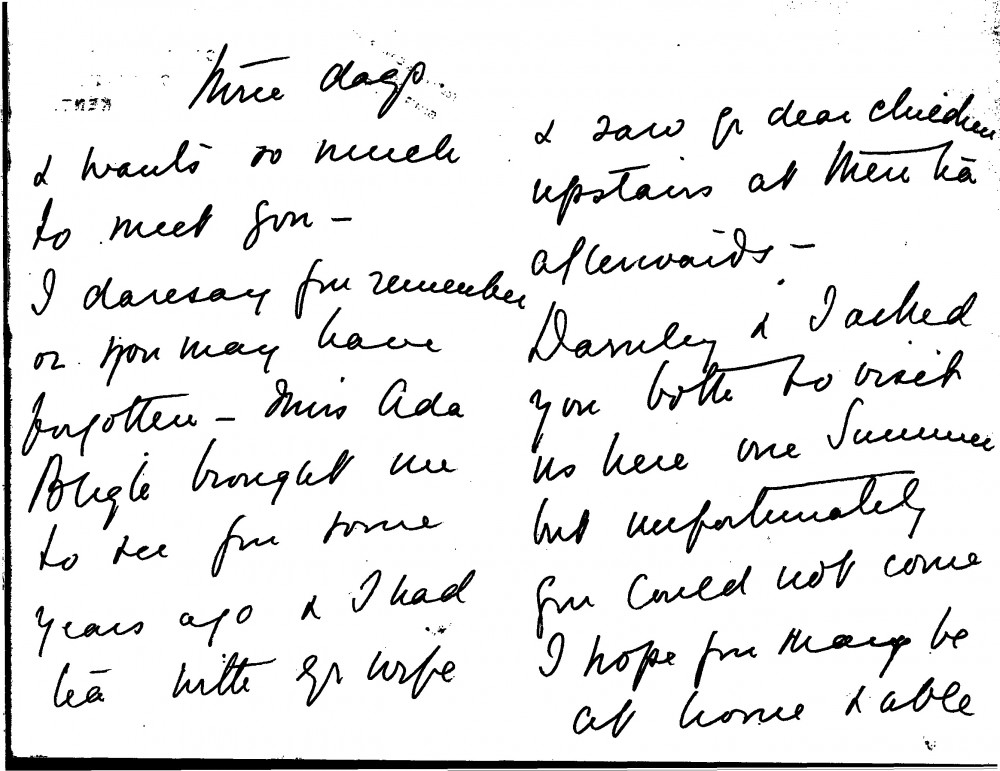 three days
& wants so much
to meet you –
I daresay you remember
or you may have
forgotten – Miss Ada
Bligh brought me
to see you some
years ago & I had
tea with yr wife
& saw yr dear children
upstairs at their tea
afterwards –
Darnley & I asked
you both to visit
us here one Summer
but unfortunately
you could not come
I hope you may be
at home & able